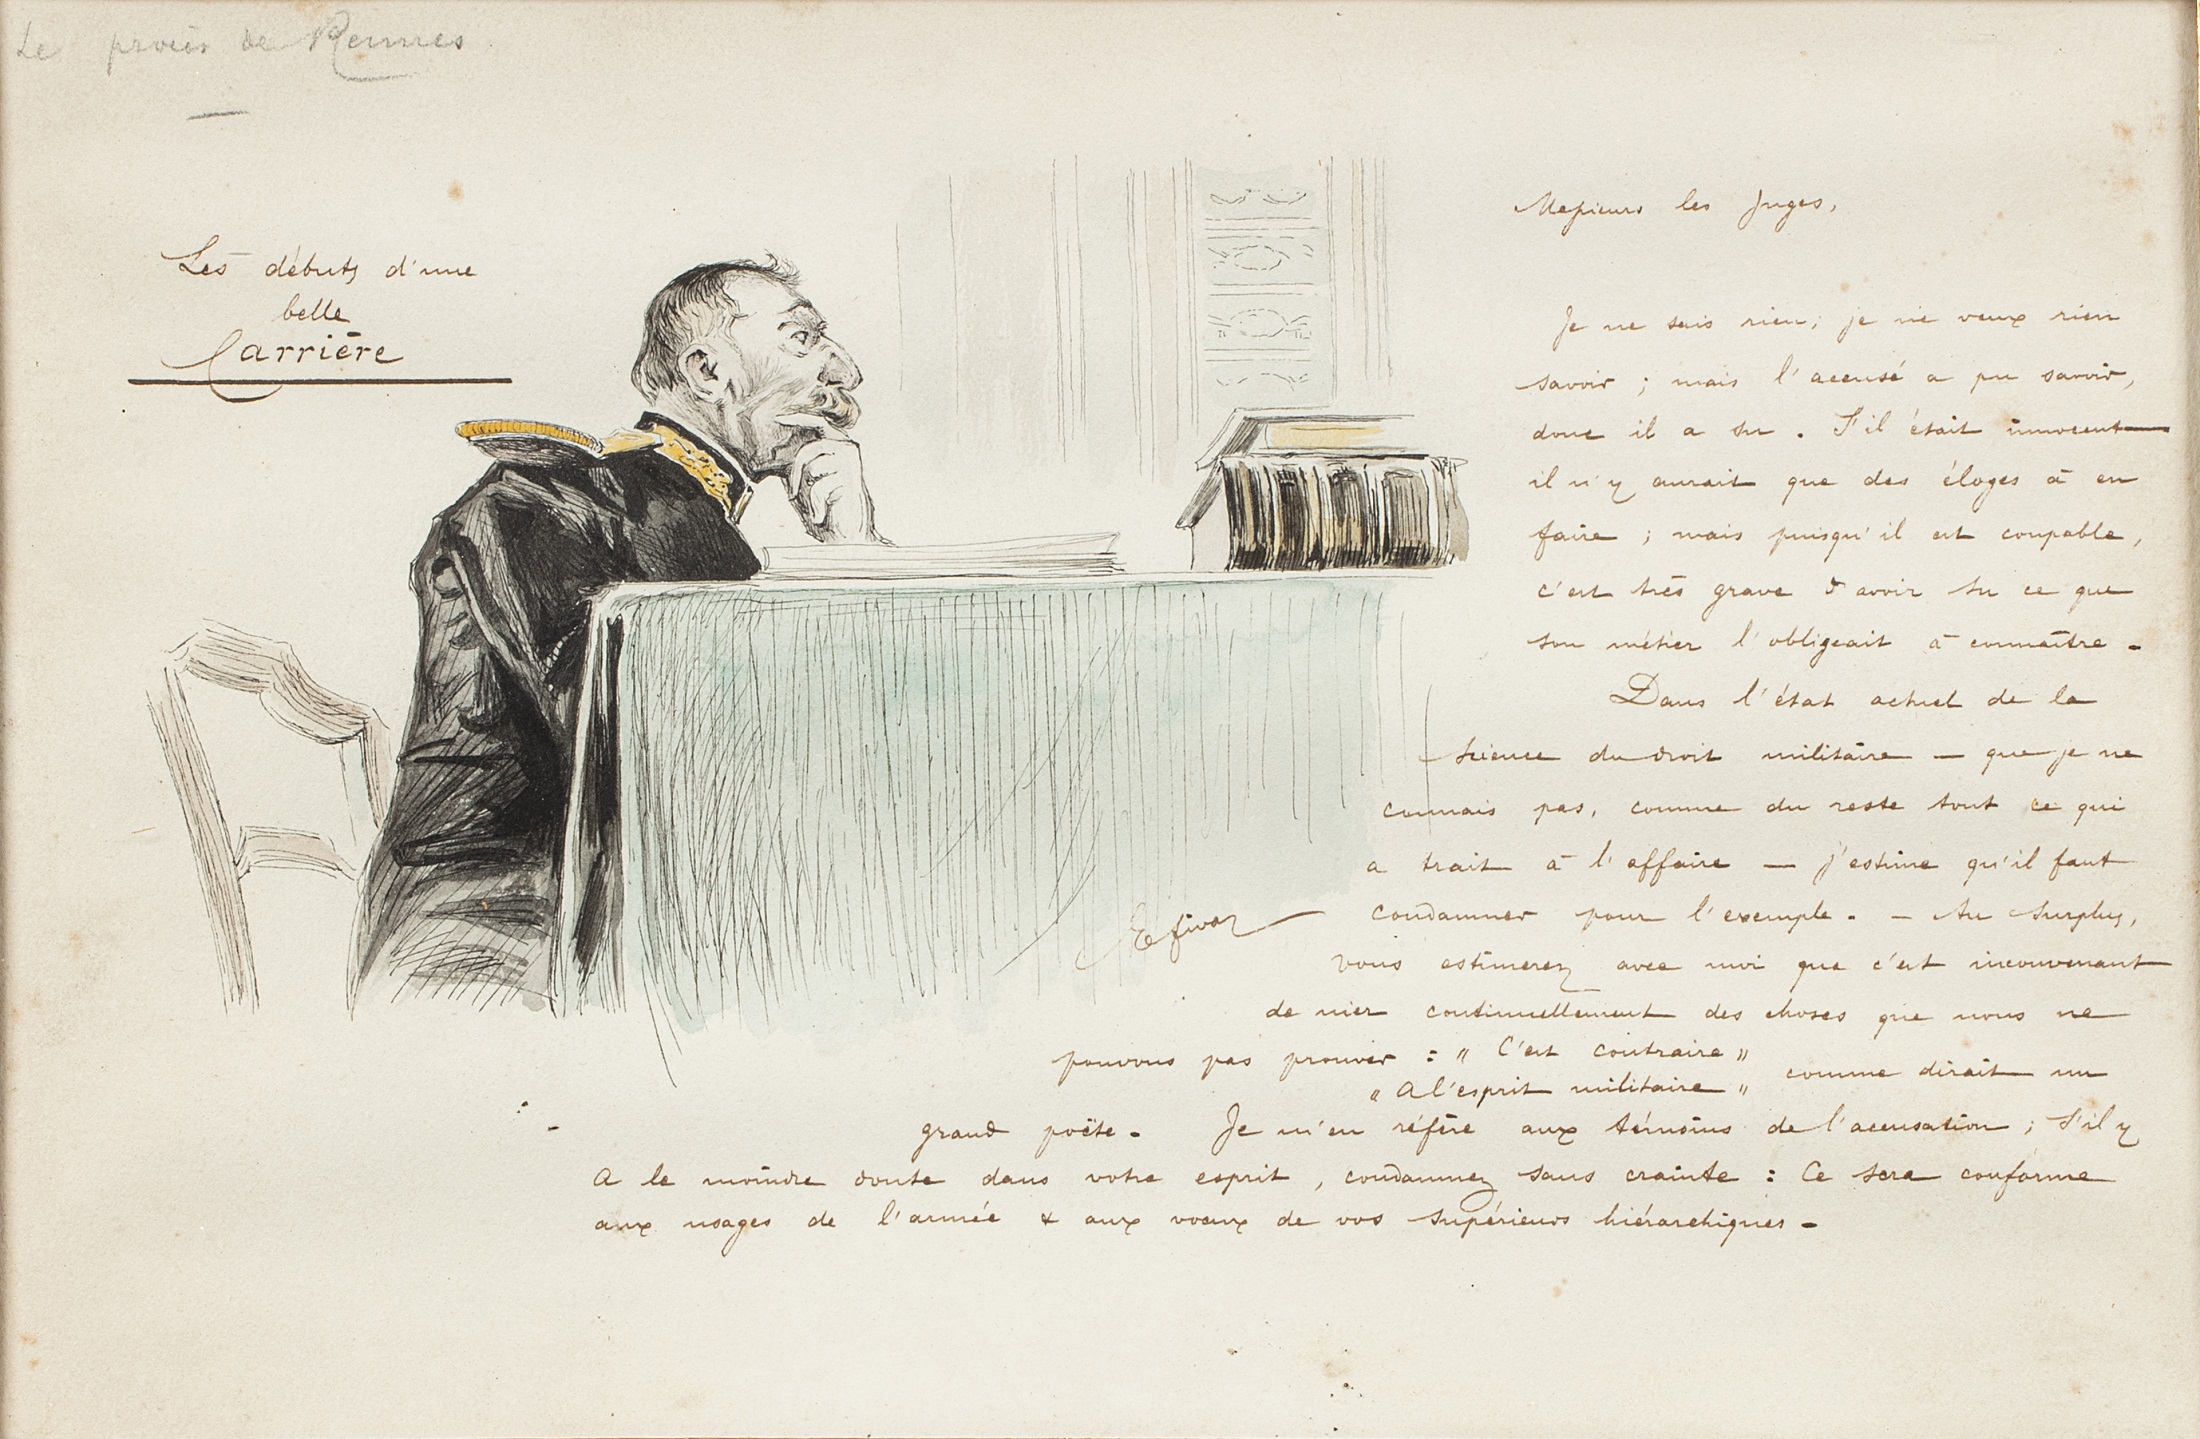 Le procès de Rennes
Les débuts d'une
belle
Carrière
Messieurs les Juges,
Je ne sais rien; je ne veux rien
savoir ; mais l'accusé a pu savoir,
donc il a su . S'il était innocent
il n'y aurait que des éloges à en
faire ; mais puisqu'il est coupable,
c'est très grave d'avoir su ce que
son métier l'obligeait à connaître -
Dans l'état actuel de la
science du droit militaire — que je ne
connais pas, comme du reste tout ce qui
a trait à l'affaire — j'estime qu'il faut
condamner pour l'exemple. - Au surplus,
vous estimerez avec moi que c'est inconvenant
de nier continuellement des choses que nous ne
pouvons pas prouver : " C'est contraire "
" A l'esprit militaire " comme dirait un
grand poëte - Je m'en réfère aux témoins de l'accusation ; S'il y
a le moindre doute dans votre esprit , condamnez sans crainte : Ce sera conforme
aux usages de l'armée & aux voeux de vos supérieurs hiérarchiques -